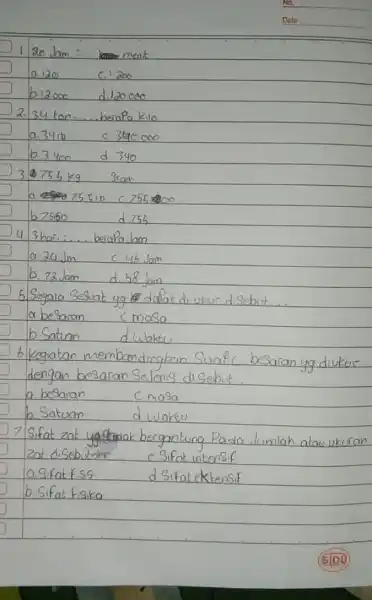 No.
Date
1. 20 Jam = menit
a. 120 c. 1200
b. 12000 d. 120000
2. 34 ton ..... berapa kilo
a. 3410 c. 340.000
b. 3400 d 340
3. 755 kg gram
c. 755000
b 7550 d. 755
4. 3 hari ..... berapa Jam
a. 24 Jm c. 45 Jam
b. 72 Jam d. 58 Jam
5. Segala Sesuat yg dapat di ukur di Sebut ...
a besaran c masa
b Satuan d waktu
6. Kegiatan membandingkan besaran yg diukur
dengan besaran Sejenis disebut.
a. besaran c masa
b. Satuan d waktu
7. Sifat zat yg tidak bergantung Pada Jumlah atau ukuran
zat disebut c Sifat intensif
a. Sifat d Sifat ektensif
b. Sifat fisika
SIDU